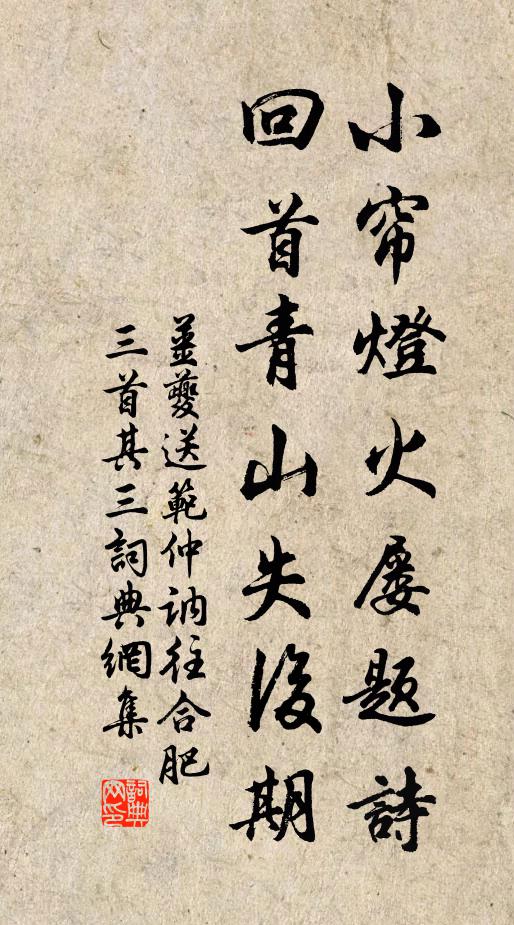 小帘燈火屡題詩
回首青山失後期
薑夔送範仲訥往合肥
三首其三詞典網集
詞典网印